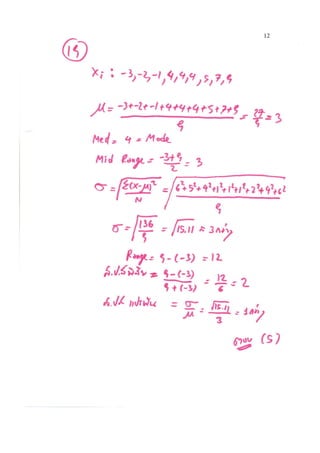 12
19
Xi : -3,-2,-1,4,4,4,5,7,9
μ = -3+-2+-1+4+4+4+5+7+9 / 9 = 27/9 = 3
Med = 4 = Mode
Mid Range = -3+9 / 2 = 3
σ = √Σ(X-μ)² / N = √6²+5²+4²+1²+1²+1²+2²+4²+6² / 9
σ = √136 / 9 = √15.11 ≈ 3 กว่าๆ
Range = 9-(-3) = 12
ส.ป.ส พิสัย = 9-(-3) / 9+(-3) = 12/6 = 2
ส.ปส แปรผัน = σ/μ = √15.11 / 3 = 1 กว่าๆ
ตอบ (5)